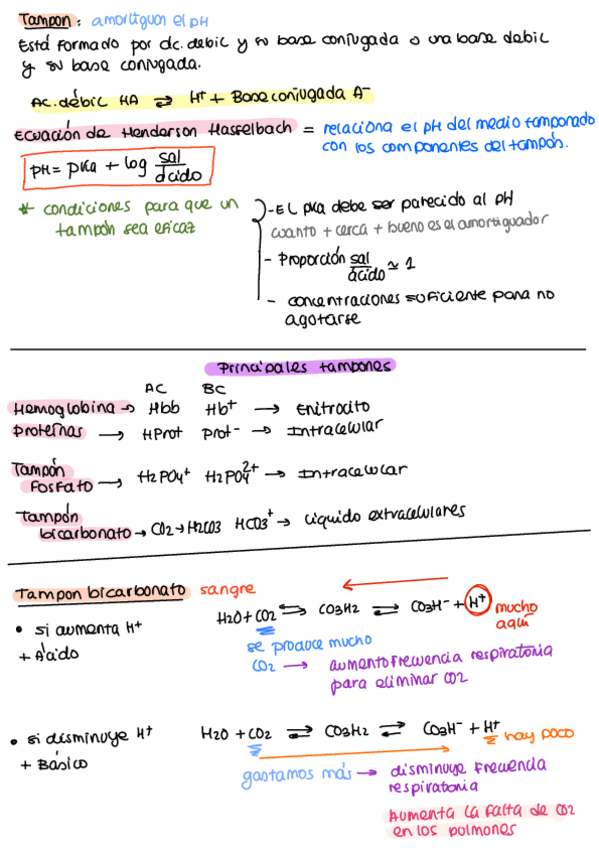 Tampon: amortiguan el pH
Está formado por ác. debil y su base conjugada o una base debil
y su base conjugada.
Ac. débil HA ⇌ H+ + Base conjugada A-
Ecuación de Henderson Hasselbach = relaciona el pH del medio tamponado
con los componentes del tampón.
pH = pKa + log sal/ácido
* condiciones para que un
tampón sea eficaz
- El pKa debe ser parecido al pH
cuanto + cerca + bueno es el amortiguador
- Proporción sal/ácido ≃ 1
- concentraciones suficiente para no
agotarse
Principales tampones
AC BC
Hemoglobina → Hbb Hb+ → Eritrocito
Proteínas → HProt Prot- → Intracelular
Tampón
fosfato → H2PO4+ H2PO4 2+ → Intracelular
Tampón
bicarbonato → CO2 → H2CO3 HCO3+ → Liquido extracelulares
Tampon bicarbonato sangre
• si aumenta H+
+ Ácido
H2O + CO2 ⇌ CO3H2 ⇌ CO3H- + H+ mucho
aquí
se produce mucho
CO2 → aumento frecuencia respiratoria
para eliminar CO2
• si disminuye H+
+ Básico
H2O + CO2 ⇌ CO3H2 ⇌ CO3H- + H+ hay poco
gastamos más → disminuye frecuencia
respiratoria
Aumenta la falta de CO2
en los pulmones